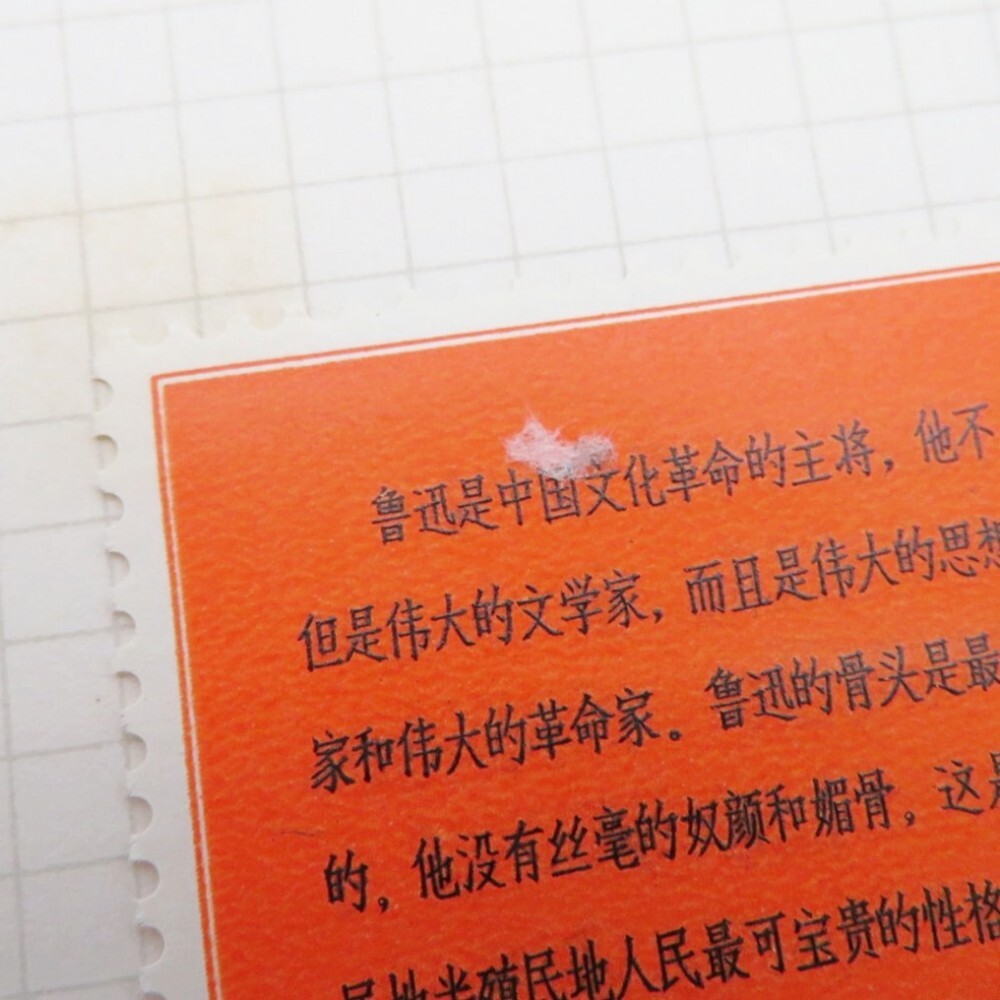 鲁迅是中国文化革命的主将，他不
但是伟大的文学家，而且是伟大的思想
家和伟大的革命家。鲁迅的骨头是最
的，他没有丝毫的奴颜和媚骨，这是
民地半殖民地人民最可宝贵的性格